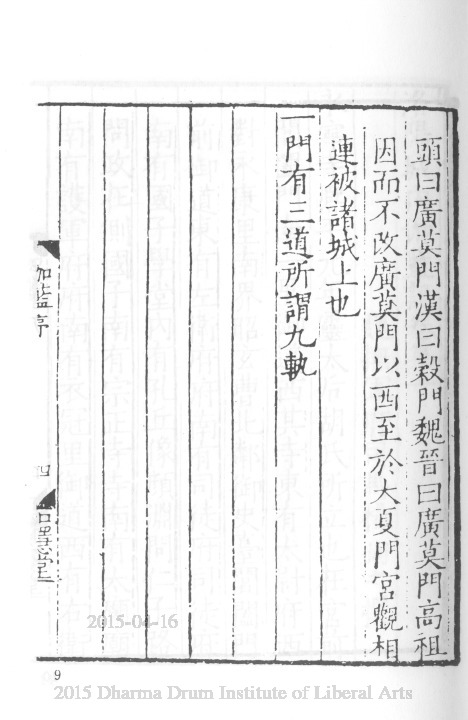 頭曰廣莫門漢曰穀門魏晉曰廣莫門高祖
因而不改廣莫門以西至於大夏門宮觀相
連被諸城上也
一門有三道所謂九軌
伽藍序
四
2015-04-16
9
2015 Dharma Drum Institute of Liberal Arts